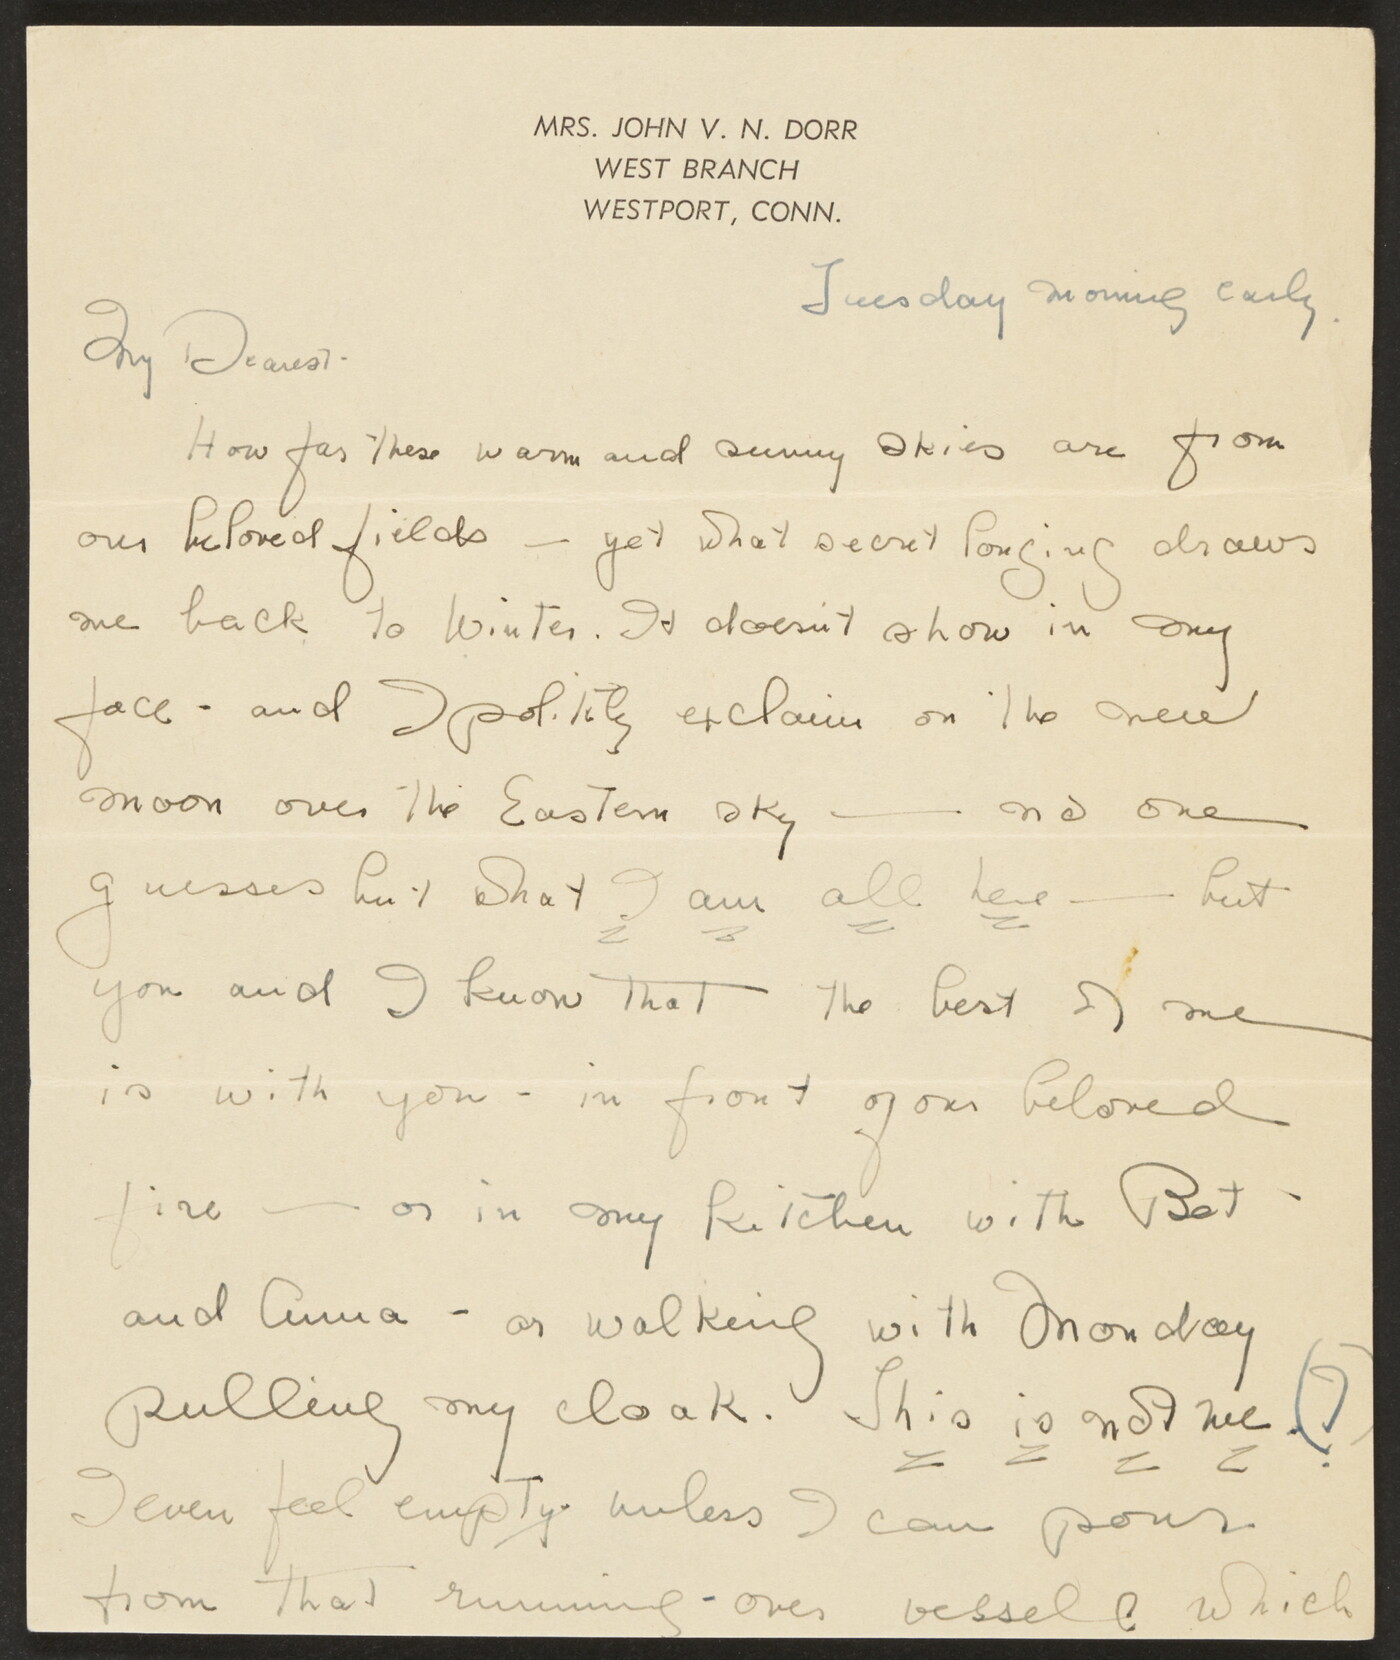 MRS. JOHN V. N. DORR
WEST BRANCH
WESTPORT, CONN.
Tuesday morning early.
My Dearest-
How far these warm and sunny skies are from
our beloved fields — yet what secret longing draws
me back to Winter. It doesn't show in my
face - and I politely exclaim on the new
moon over the Eastern sky — no one
guesses but what I am all here — but
you and I know that the best of me
is with you - in front of our beloved
fire — or in my kitchen with Bet -
and Anna - or walking with Monday
pulling my cloak. This is not me. (?)
I even feel empty unless I can pour
from that running-over vessel which